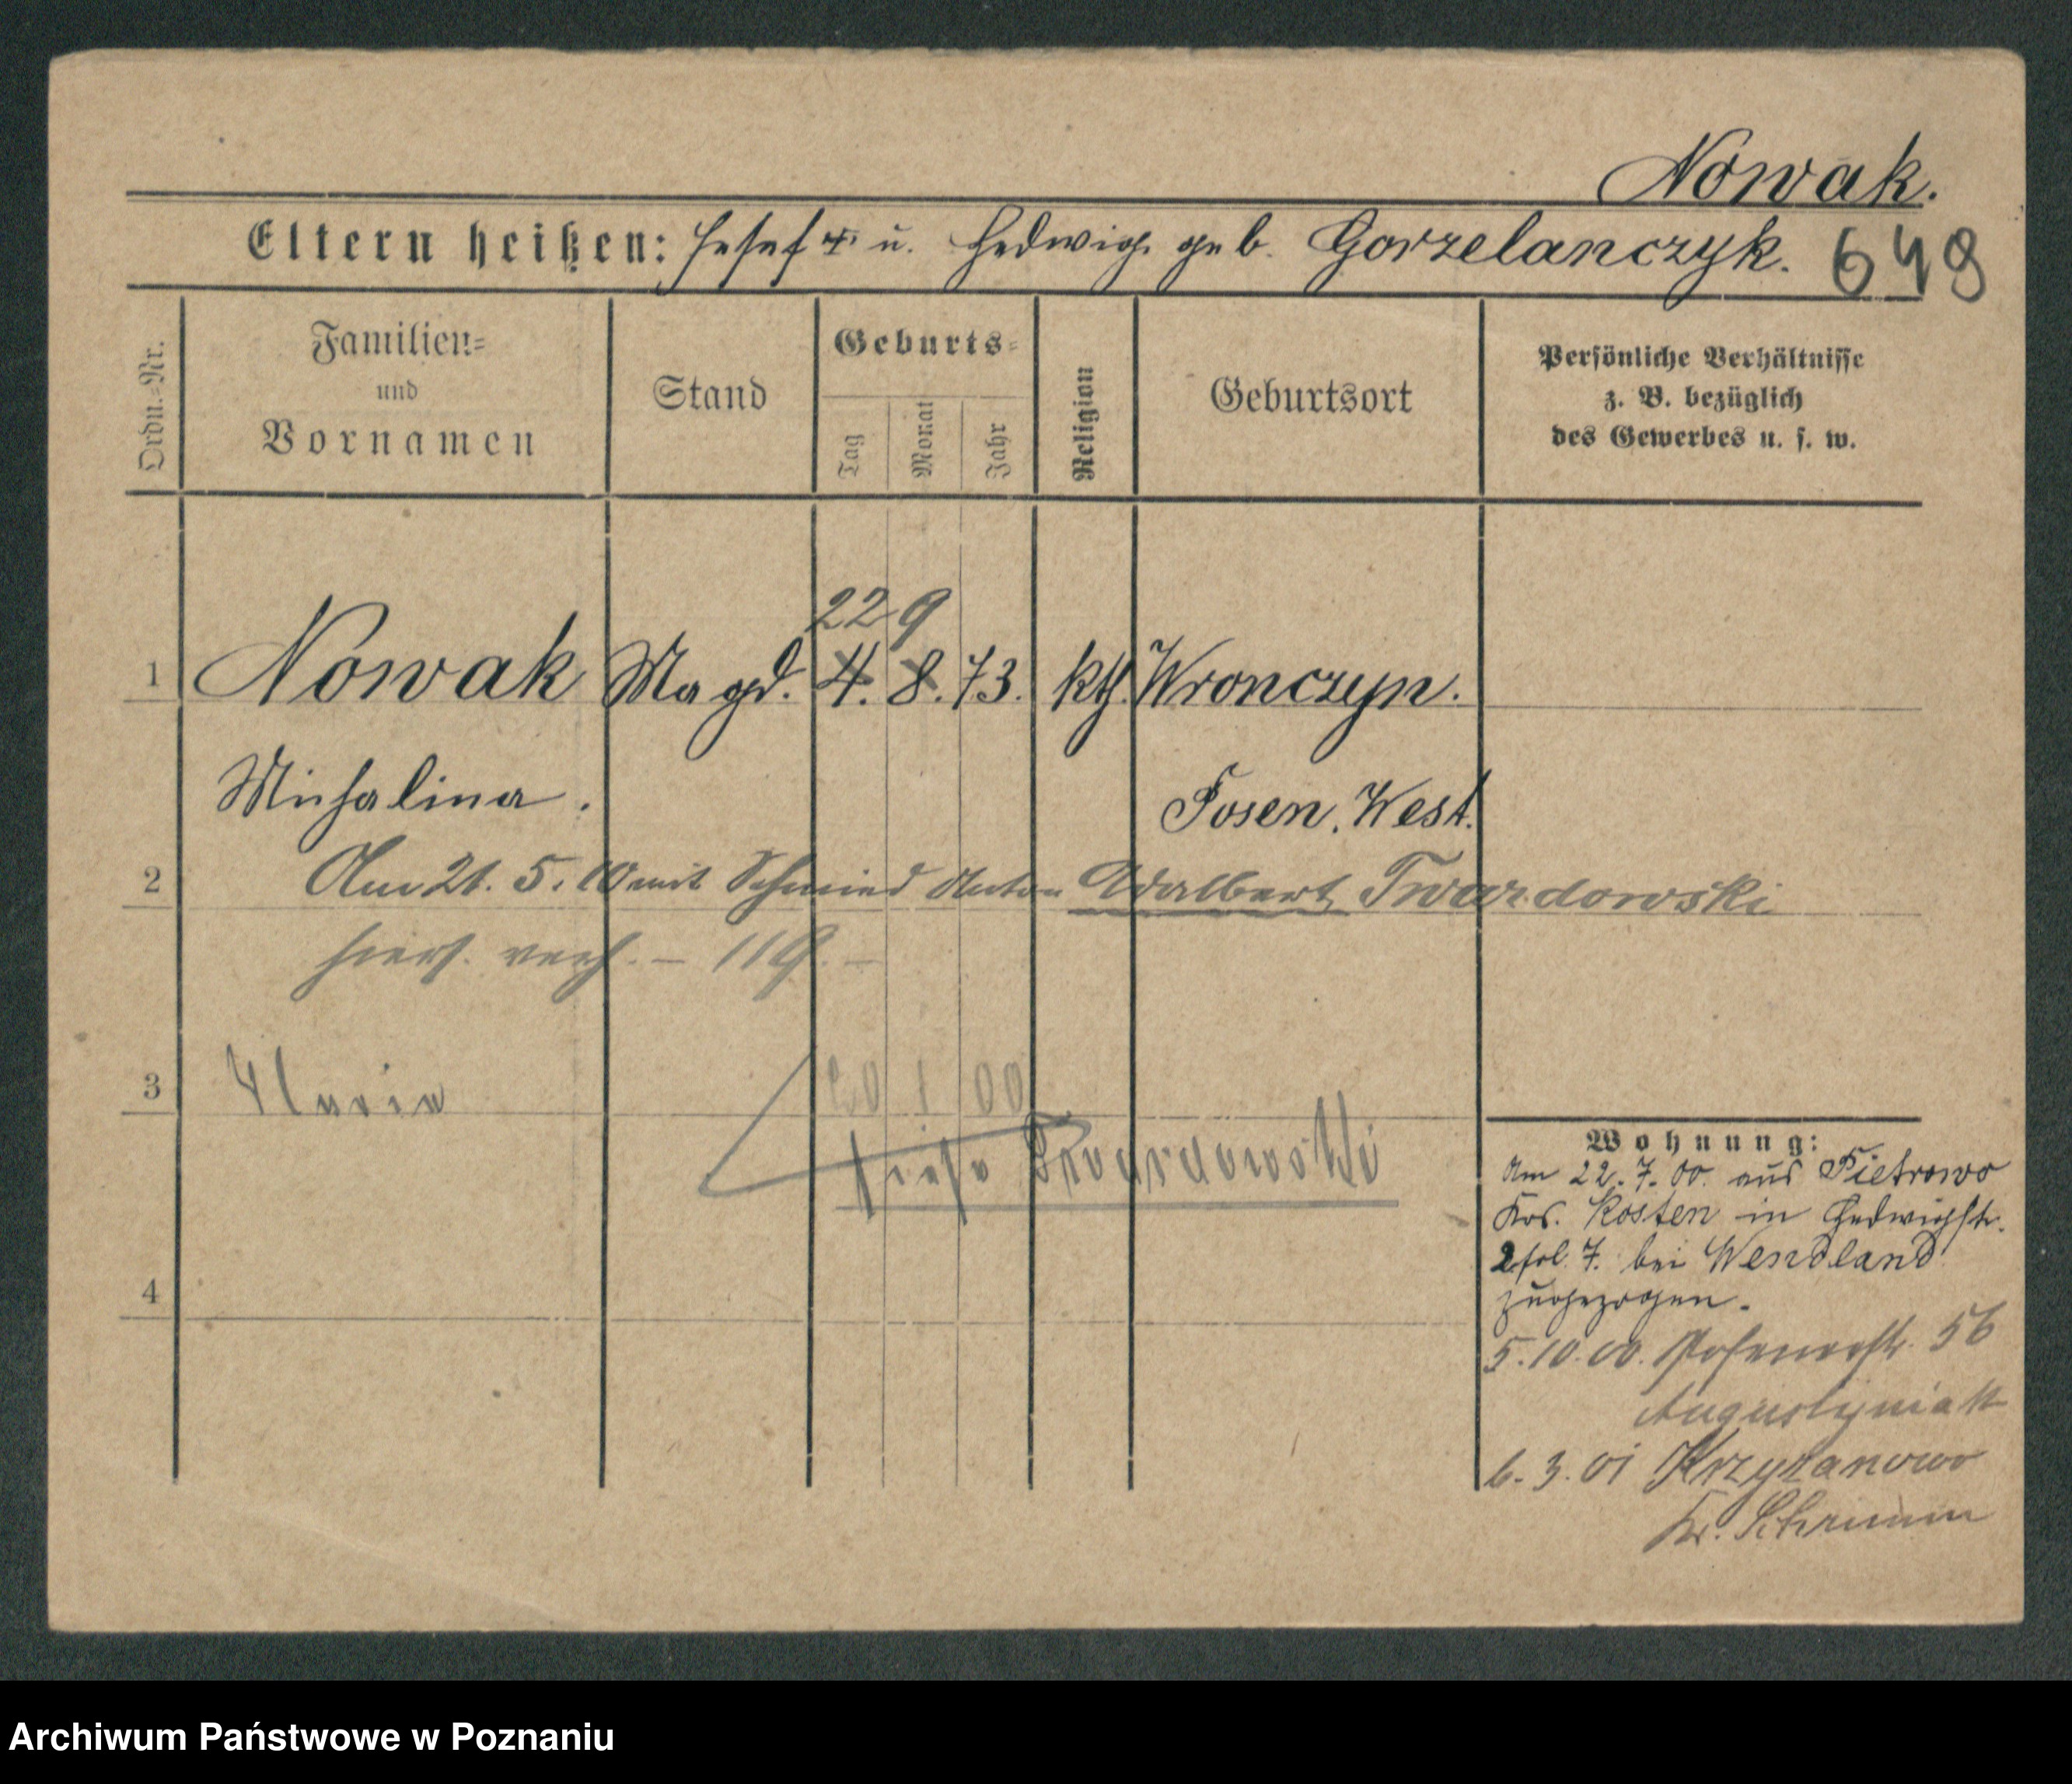 Nowak.
Eltern heißen: Josef † u. Hedwig geb. Gorzelanczyk. 649
Ordn.=Nr.
Familien=
und
Vornamen
Stand
Geburts=
Tag
Monat
Jahr
Religion
Geburtsort
Persönliche Verhältnisse
z. B. bezüglich
des Gewerbes u. s. w.
22 9
1 Nowak Magd. 4. 8. 73. kth. Wronczyn.
Michalina. Posen. West.
2 Am 21. 5. 10 mit Schmied Anton Adalbert Twardowski
hiers. verh. – 119. –
3 20 1 00
siehe Twardowski
4
Wohnung:
Am 22. 7. 00. aus Pietrowo
Krs. Kosten in Hedwigstr.
7. bei Wendland
zugezogen.
5. 10. 00. Posenerstr. 56
Augustyniak
6. 3. 01 Krzyzanowo
Kr. Schrimm
Archiwum Państwowe w Poznaniu